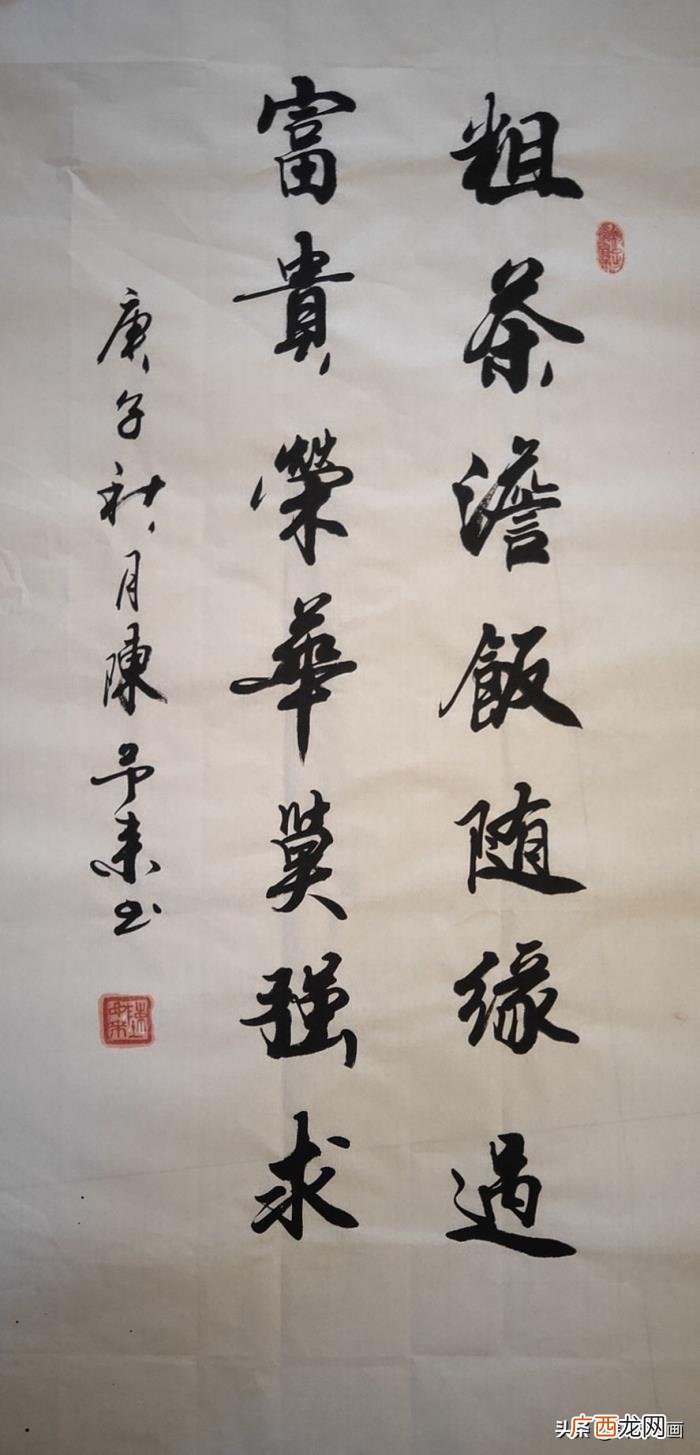 粗茶澹飯随緣過
富貴榮華莫强求
庚子秋月陳予来书
头条
广西龙网
画